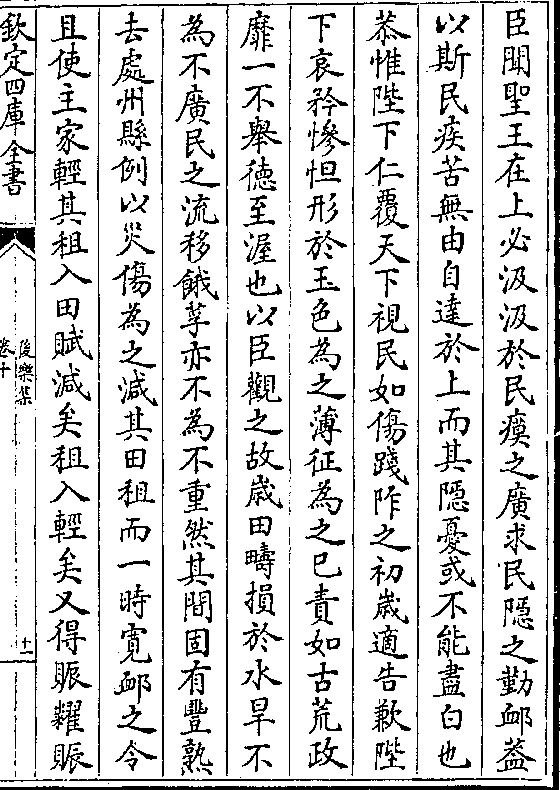 臣聞聖王在上必汲汲於民瘼之廣求民隱之勤䘏葢
以斯民疾苦無由自達於上而其隱憂或不能盡白也
恭惟陛下仁覆天下視民如傷踐阼之初嵗適告歉陛
下哀矜慘怛形於玉色為之薄征為之已責如古荒政
靡一不舉徳至渥也以臣觀之故嵗田疇損於水旱不
為不廣民之流移餓莩亦不為不重然其間固有豐熟
去處州縣例以災傷為之減其田租而一時寛䘏之令
且使主家輕其租入田賦減矣租入輕矣又得賑糶賑
欽定四庫全書
後樂集
卷十
十二